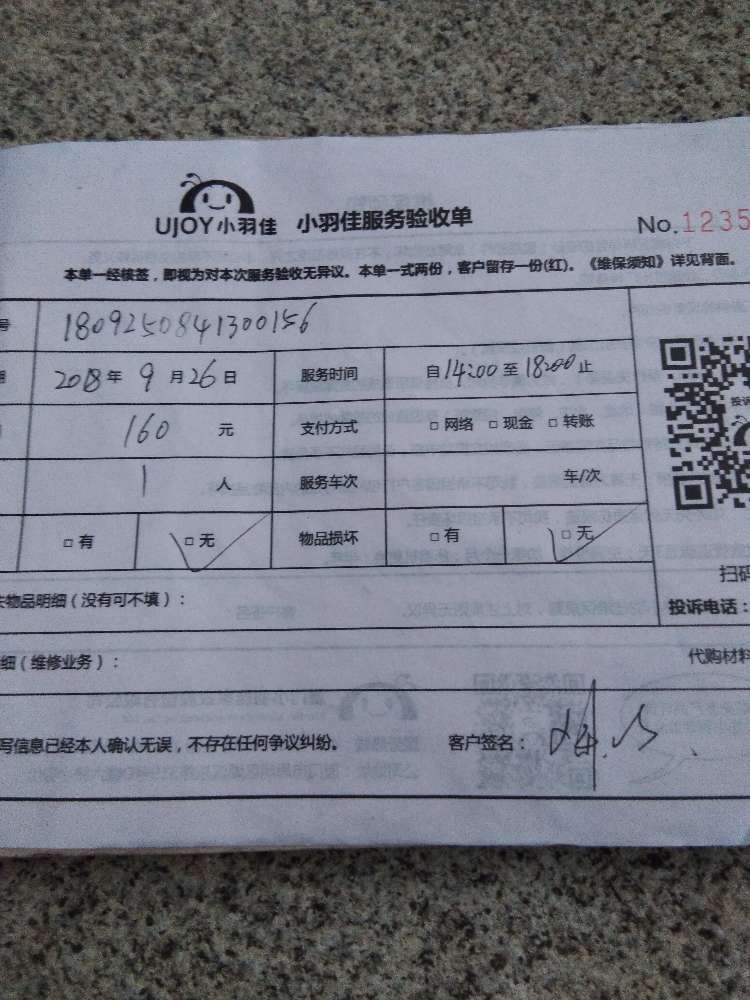 UJOY小羽佳 小羽佳服务验收单
No.1235
本单一经核签，即视为对本次服务验收无异议。本单一式两份，客户留存一份(红)。《维保须知》详见背面。
号 1809250841300156
期 2018年 9月26日 服务时间 自14:00至18:00止
160 元 支付方式 □网络 □现金 □转账
1 人 服务车次 车/次
□有 □无 物品损坏 □有 □无
投诉
扫码
投诉电话：
失物品明细（没有可不填）：
细（维修业务）： 代购材料
写信息已经本人确认无误，不存在任何争议纠纷。 客户签名：